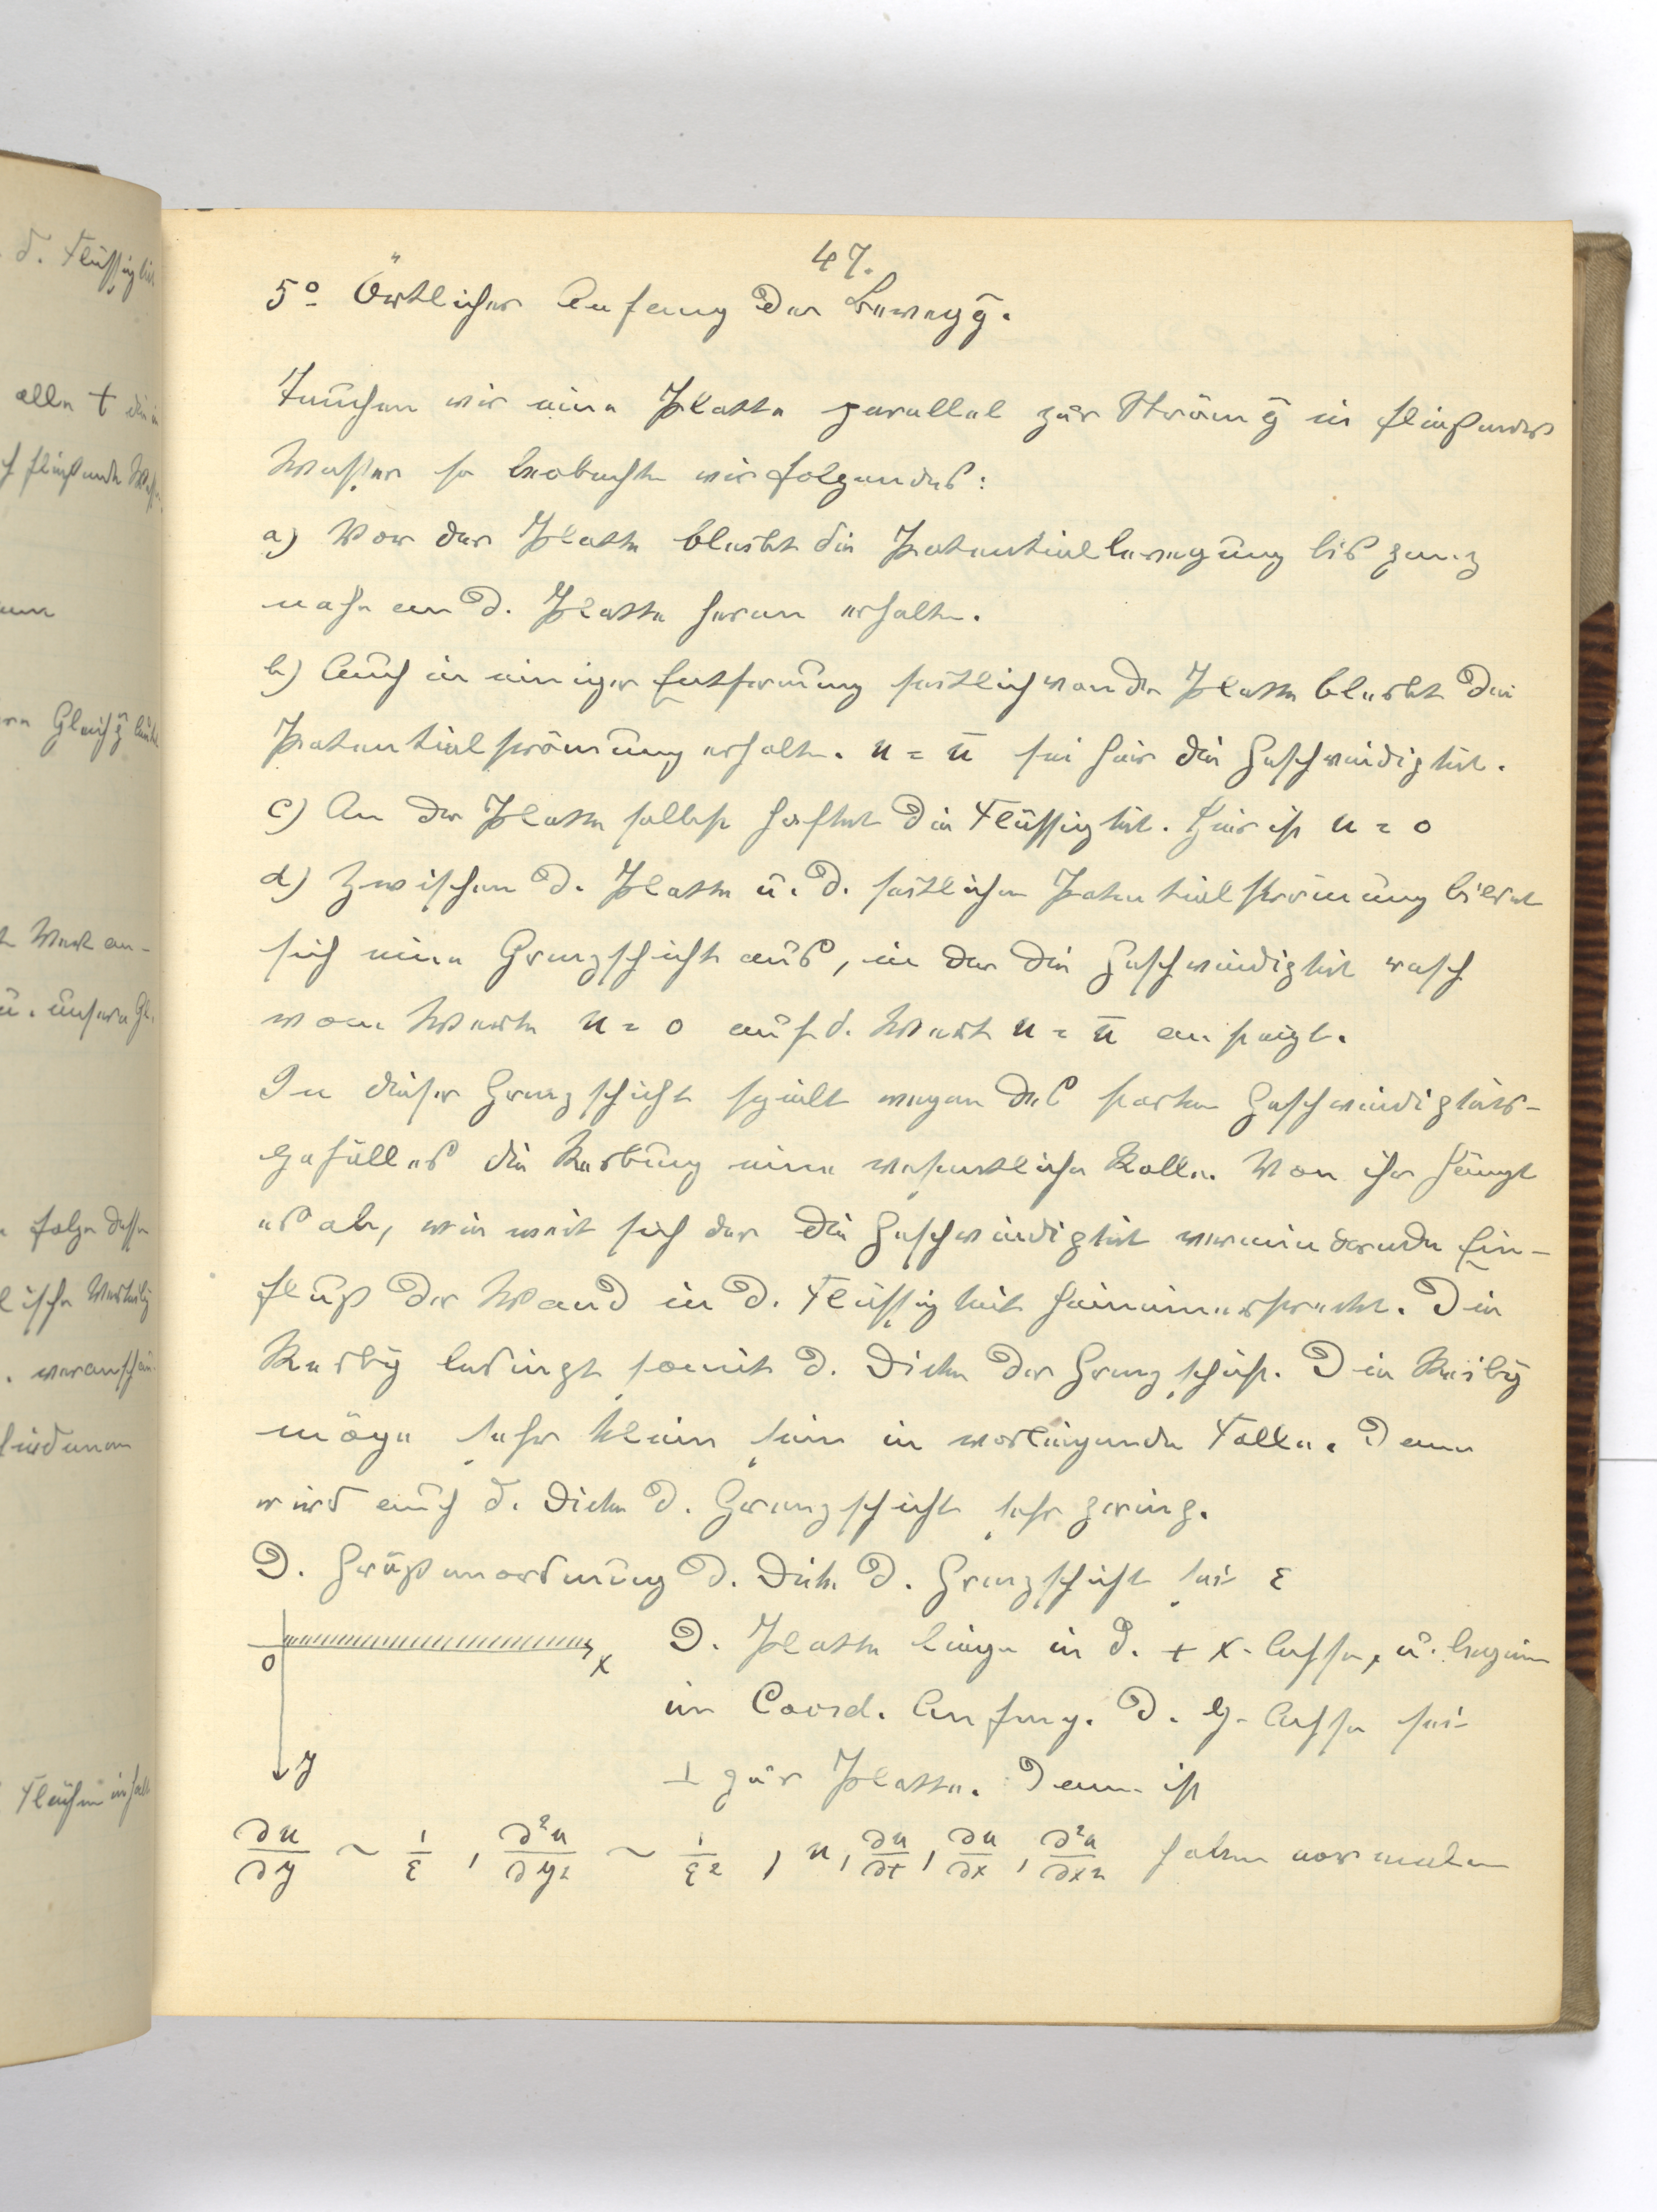 47.
5º Örtlicher Anfang der Beweg̅g.
Tauchen wir eine Platte parallel zur Ström̅g in fließendes
Wasser so beobachten wir folgendes:
a) Vor der Platte bleibt die Potentialbewegung bis ganz
nahe an d. Platte heran erhalten.
b) Auch in einiger Entfernung seitlich von der Platte bleibt die
Potentialströmung erhalten. u = u̅ sei hier die Geschwindigkeit.
c) An der Platte selbst haftet die Flüssigkeit. Hier ist u = 0
d) Zwischen d. Platte u. d. seitlichen Potentialströmung bildet
sich eine Grenzschicht aus, in der die Geschwindigkeit rasch
vom Werte u = 0 auf d. Wert u = u̅ ansteigt.
In dieser Grenzschicht spielt wegen des starken Geschwindigkeits-
gefälles die Reibung eine wesentliche Rolle. Von ihr hängt
es ab, wie weit sich der die Geschwindigkeit vermindernde Ein-
fluß der Wand in d. Flüssigkeit hineinerstreckt. Die
Reib̅g bedingt somit d. Dicke der Grenzschicht. Die Reib̅g
möge sehr klein sein im vorliegenden Falle. Dann
wird auch d. Dicke d. Grenzschicht sehr gering.
D. Größenordnung d. Dicke d. Grenzschicht sei ε
D. Platte liege in d. + x-Achse, u. beginne
im Coord. Anfang. D. y-Achse sei
⊥ zur Platte. Dann ist
0 x
y
∂u/∂y ~ 1/ε , ∂²u/∂y² ~ 1/ε² , u, ∂u/∂t, ∂u/∂x, ∂²u/∂x² haben normalen
d. Flüssigkeit
alle t
fließende
Wert an-
u. unsere Gl.
folge dessen